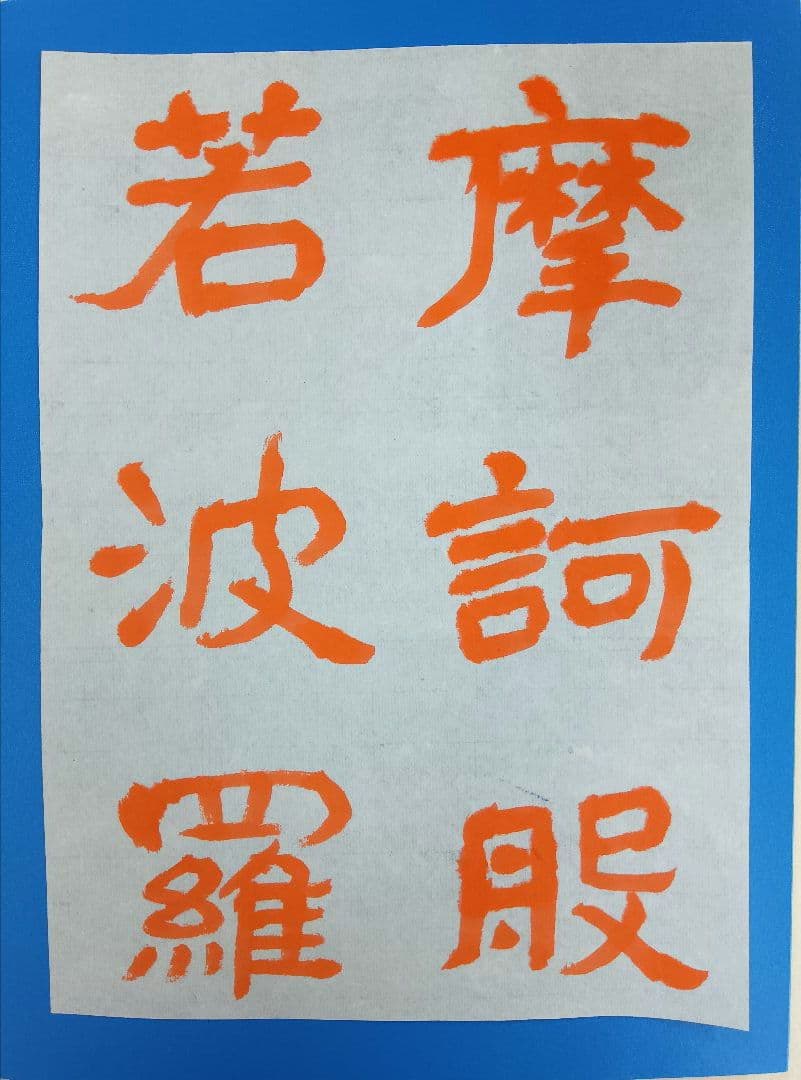 摩訶般
若波羅